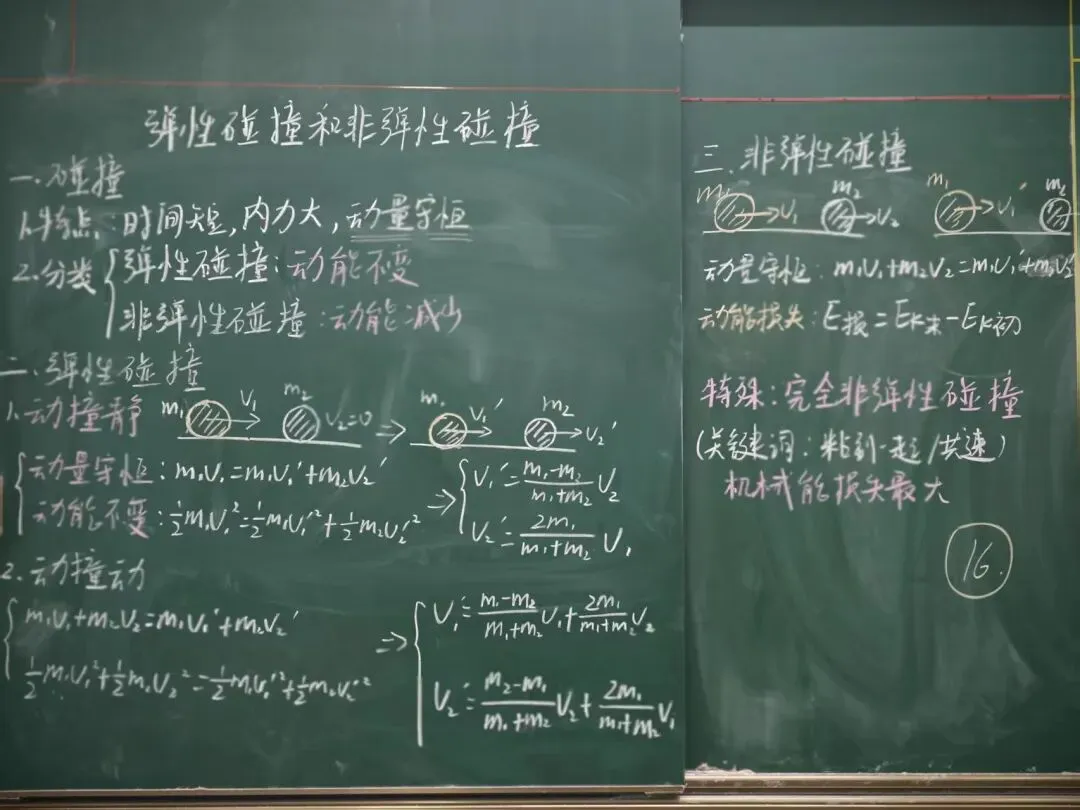 弹性碰撞和非弹性碰撞
一.碰撞
1.特点:时间短,内力大,动量守恒
2.分类{弹性碰撞:动能不变
非弹性碰撞:动能减少
二.弹性碰撞
1.动撞静 m₁ V₁ m₂ V₂=0 ⇒ m₁ V₁′ m₂ V₂′
{动量守恒:m₁V₁=m₁V₁′+m₂V₂′
动能不变:½m₁V₁²=½m₁V₁′²+½m₂V₂′²
⇒{V₁′=(m₁-m₂)/(m₁+m₂) V₂
V₂′=2m₁/(m₁+m₂) V₁
2.动撞动
{m₁V₁+m₂V₂=m₁V₁′+m₂V₂′
½m₁V₁²+½m₁V₂²=½m₁V₁′²+½m₂V₂′²
⇒{V₁′=(m₁-m₂)/(m₁+m₂) V₁+2m₁/(m₁+m₂) V₂
V₂′=(m₂-m₁)/(m₁+m₂) V₂+2m₁/(m₁+m₂) V₁
三.非弹性碰撞
m₁ V₁ m₂ V₂ m₁ V₁′ m₂
动量守恒:m₁V₁+m₂V₂=m₁V₁′+m₂V₂′
动能损失:E损=Ek末-Ek初
特殊:完全非弹性碰撞
(关键词:粘到一起/共速)
机械能损失最大
16.